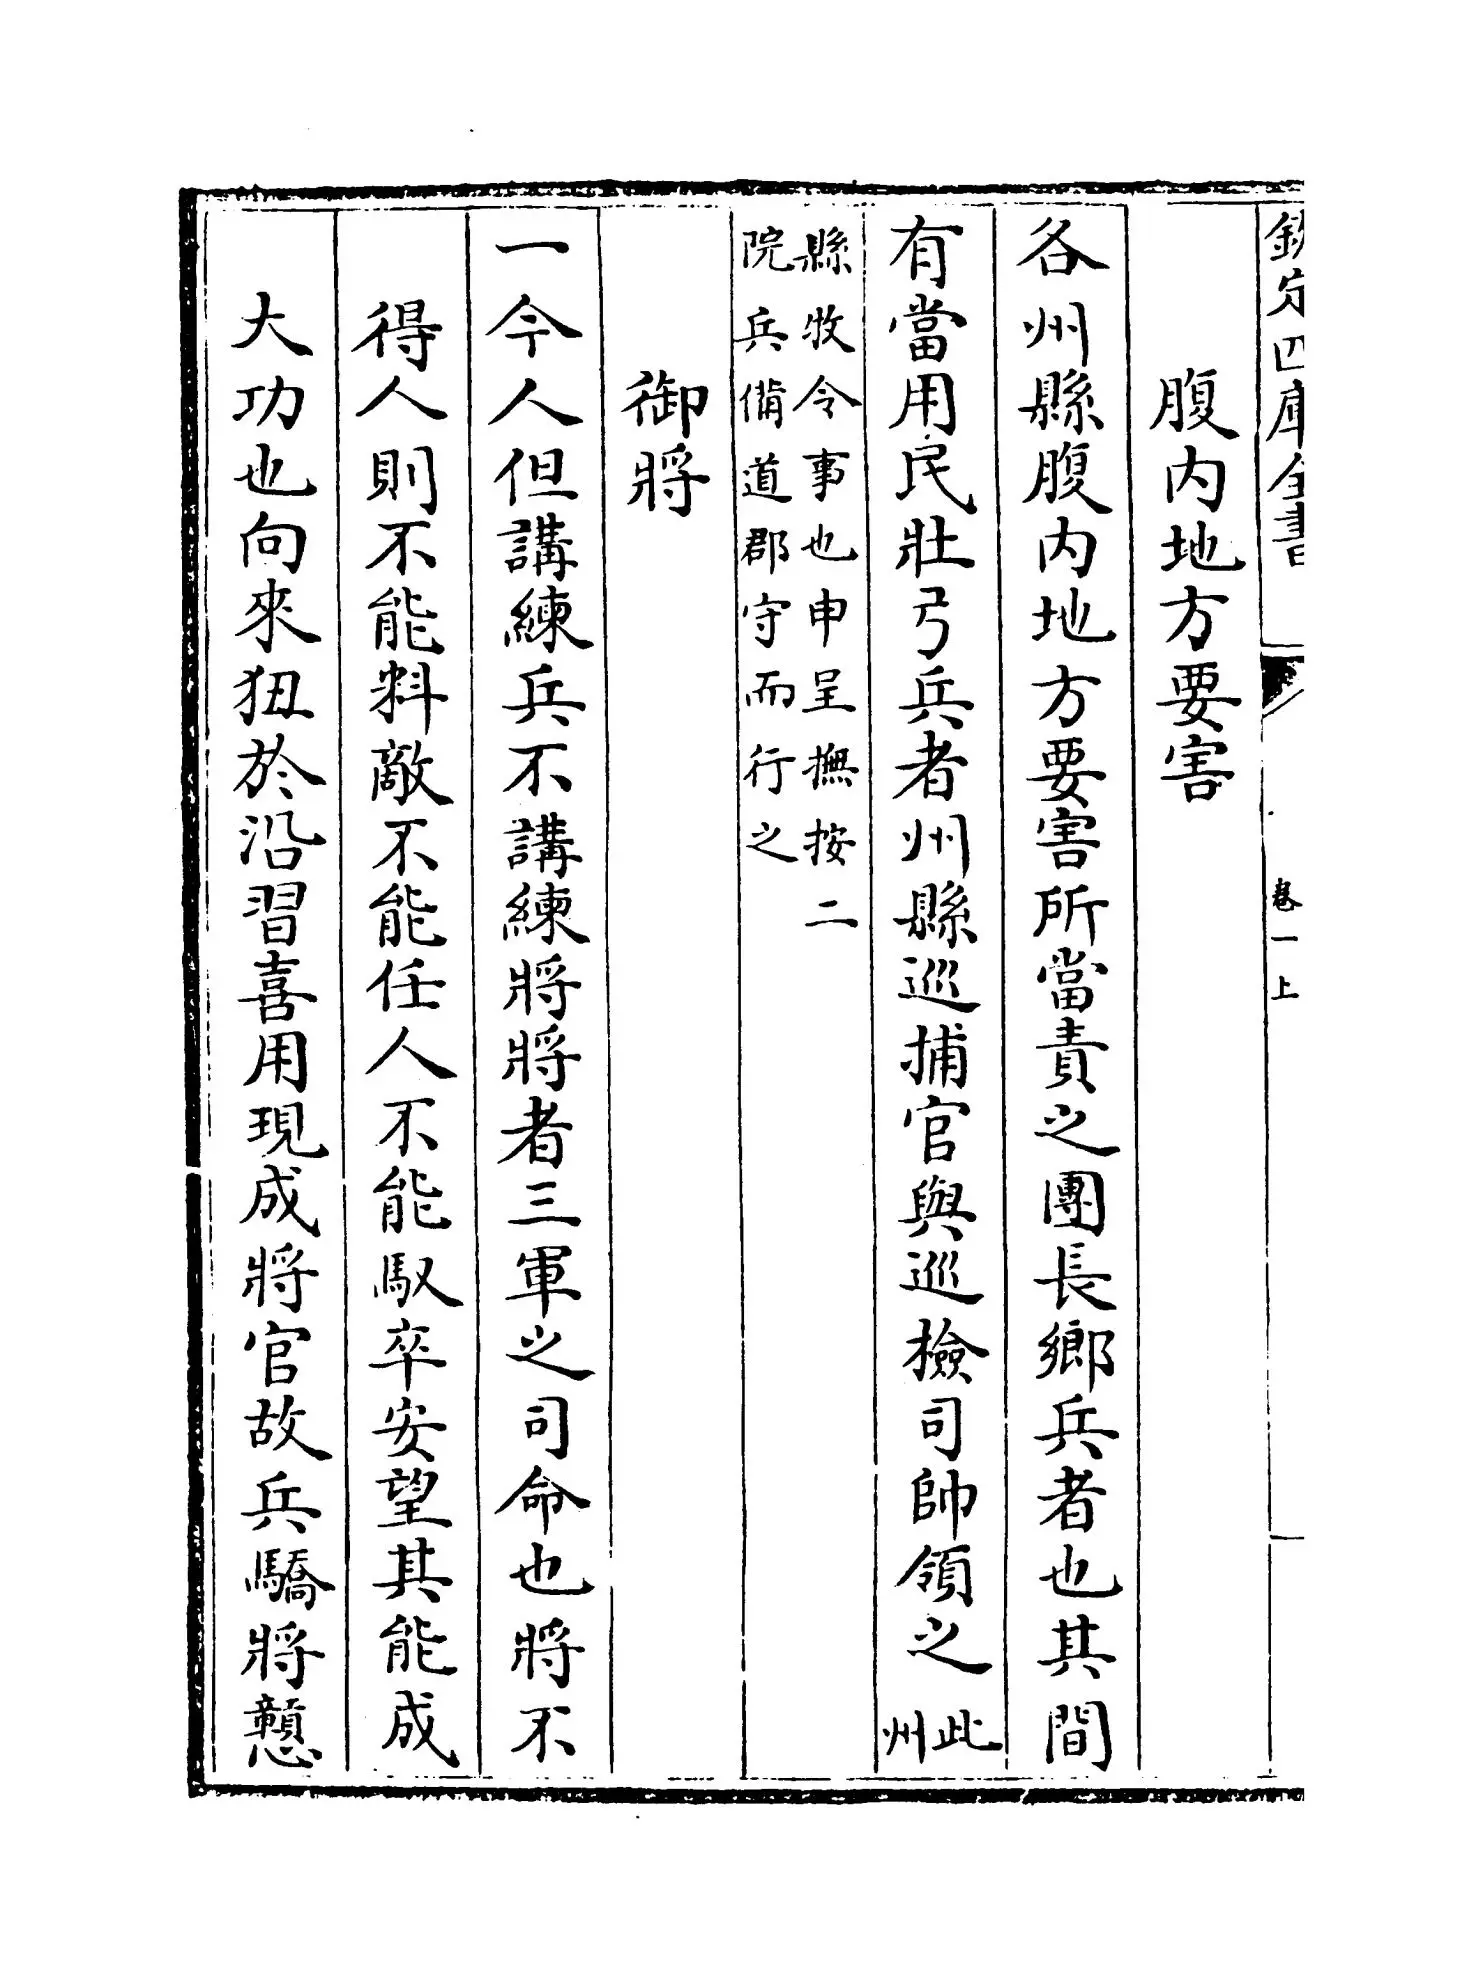 欽定四庫全書 卷一上
腹内地方要害
各州縣腹内地方要害所當責之團長鄉兵者也其間
有當用民壯弓兵者州縣巡捕官與巡檢司帥領之此州
縣牧令事也申呈撫按二
院兵備道郡守而行之
御將
一今人但講練兵不講練將將者三軍之司命也將不
得人則不能料敵不能任人不能馭卒安望其能成
大功也向來狃於沿習喜用現成將官故兵驕將戇